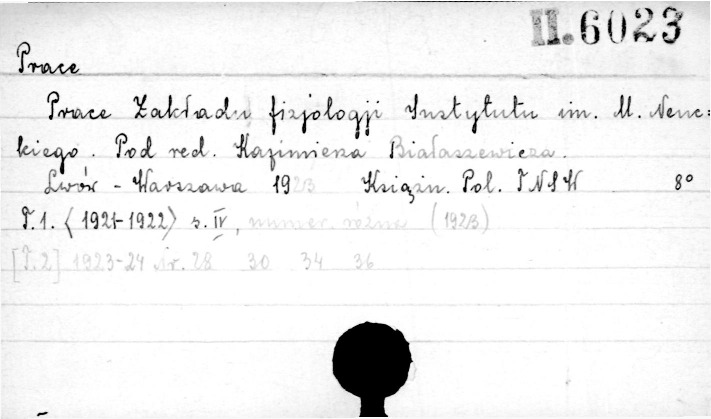 II. 6023
Prace
Prace Zakładu fizjologji Instytutu im. M. Nenc=
kiego. Pod red. Kazimierza Białaszewicza.
Lwów - Warszawa 1923 Książn. Pol. TNSW 8°
T.1. <1921-1922> s. IV, numer. różna (1923)
[T.2] 1923-24 Nr. 28 30 34 36